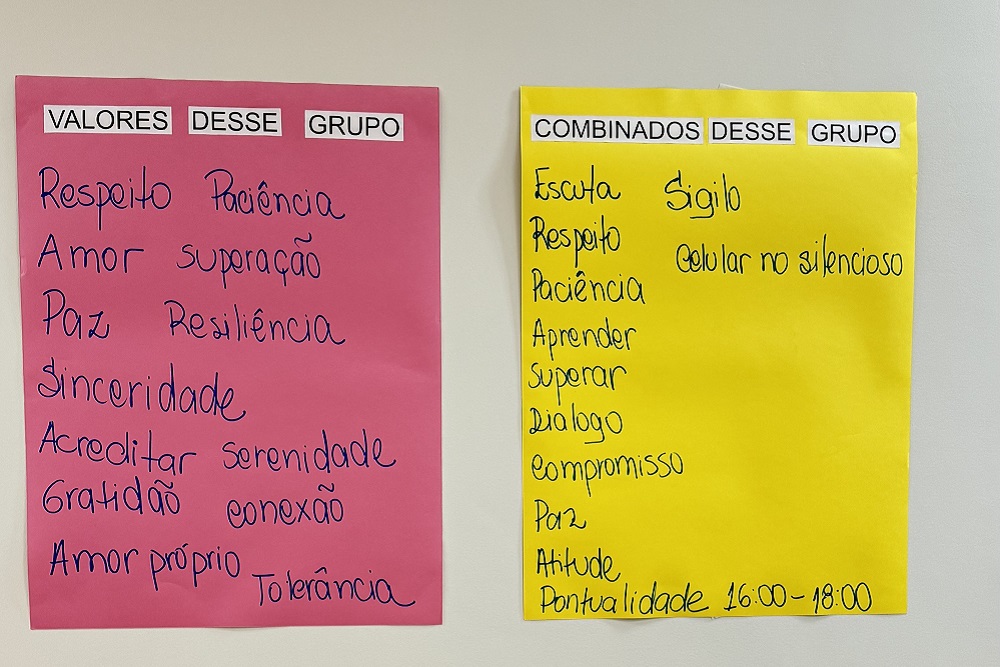 VALORES DESSE GRUPO
Respeito Paciência
Amor superação
Paz Resiliência
Sinceridade
Acreditar serenidade
Gratidão conexão
Amor próprio
Tolerância
COMBINADOS DESSE GRUPO
Escuta Sigilo
Respeito
Celular no silencioso
Paciência
Aprender
superar
Dialogo
compromisso
Paz
Atitude
Pontualidade 16:00-18:00